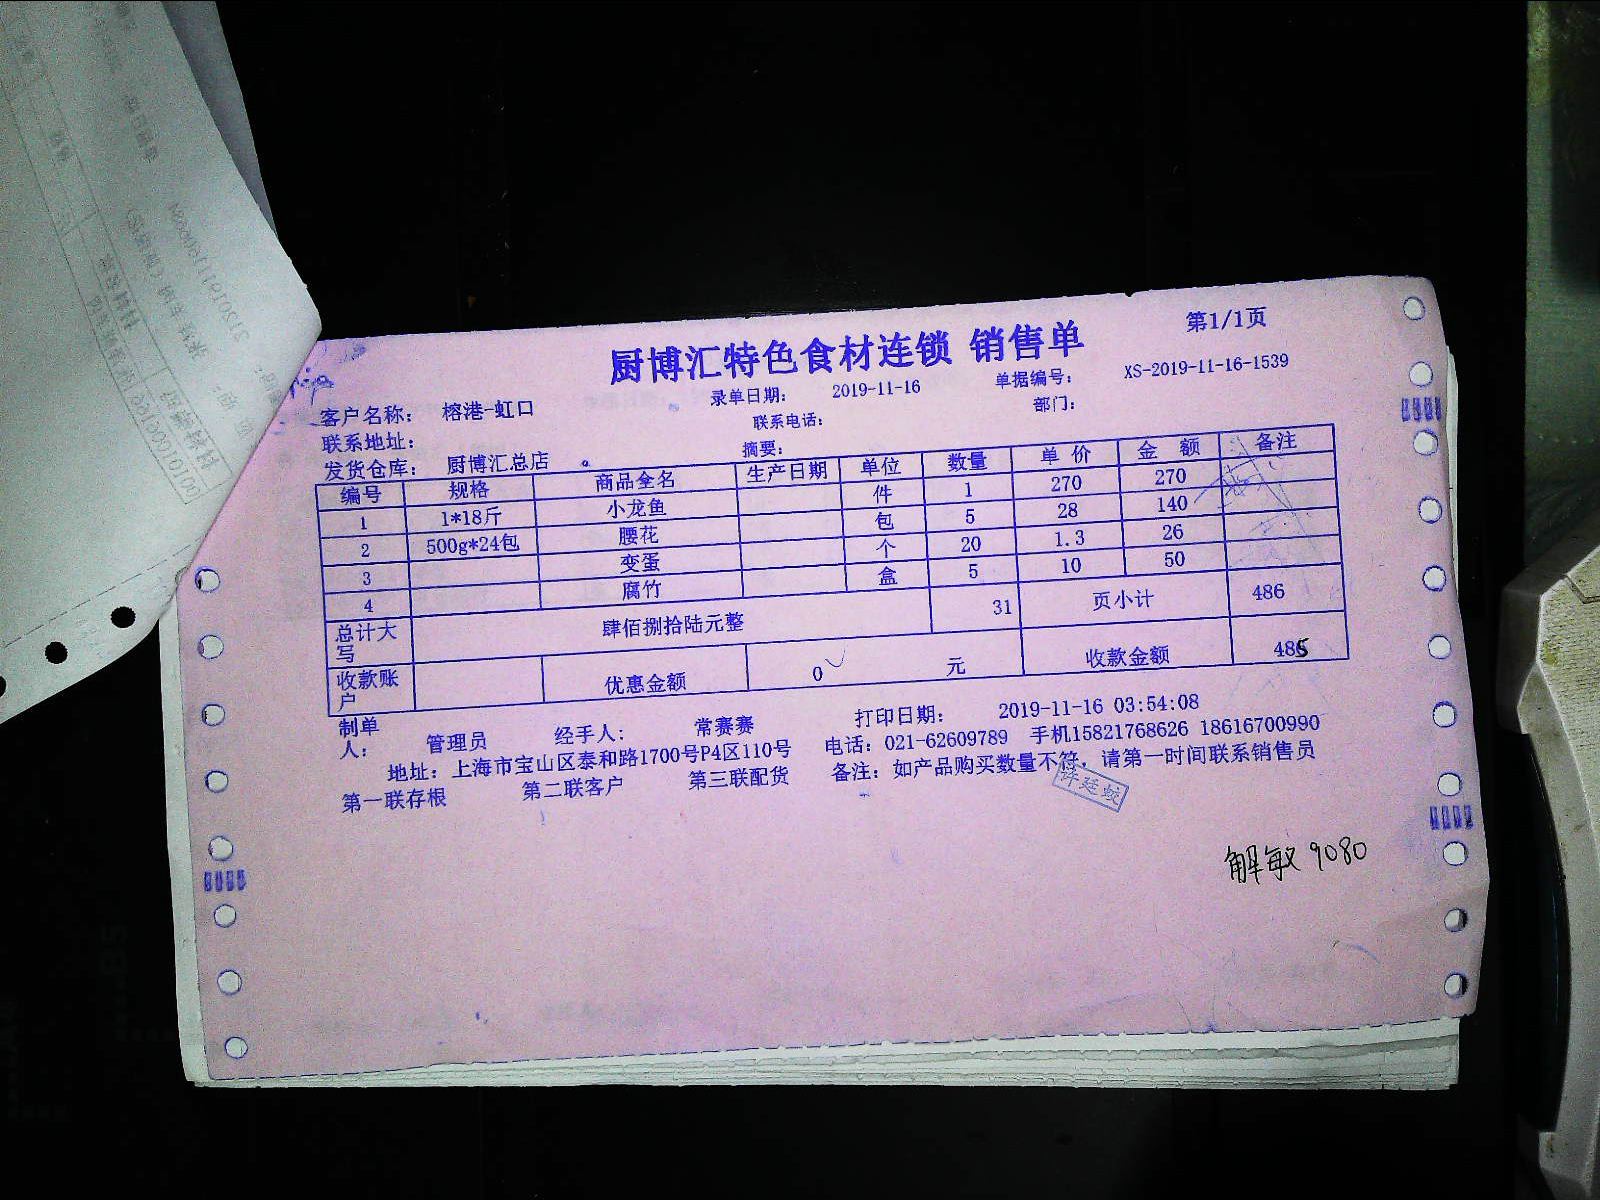 厨博汇特色食材连锁 销售单
第1/1页
客户名称： 榕港-虹口
录单日期： 2019-11-16
单据编号： XS-2019-11-16-1539
联系地址：
联系电话：
部门：
发货仓库： 厨博汇总店
摘要：
编号 规格 商品全名 生产日期 单位 数量 单 价 金 额 备注
1 1*18斤 小龙鱼 件 1 270 270
2 500g*24包 腰花 包 5 28 140
3 变蛋 个 20 1.3 26
4 腐竹 盒 5 10 50
总计大写 肆佰捌拾陆元整 31 页小计 486
收款账户 优惠金额 0 元 收款金额 485
制单人： 管理员 经手人： 常赛赛 打印日期： 2019-11-16 03:54:08
地址：上海市宝山区泰和路1700号P4区110号 电话：021-62609789 手机15821768626 18616700990
第一联存根 第二联客户 第三联配货 备注：如产品购买数量不符，请第一时间联系销售员
解敏 9080